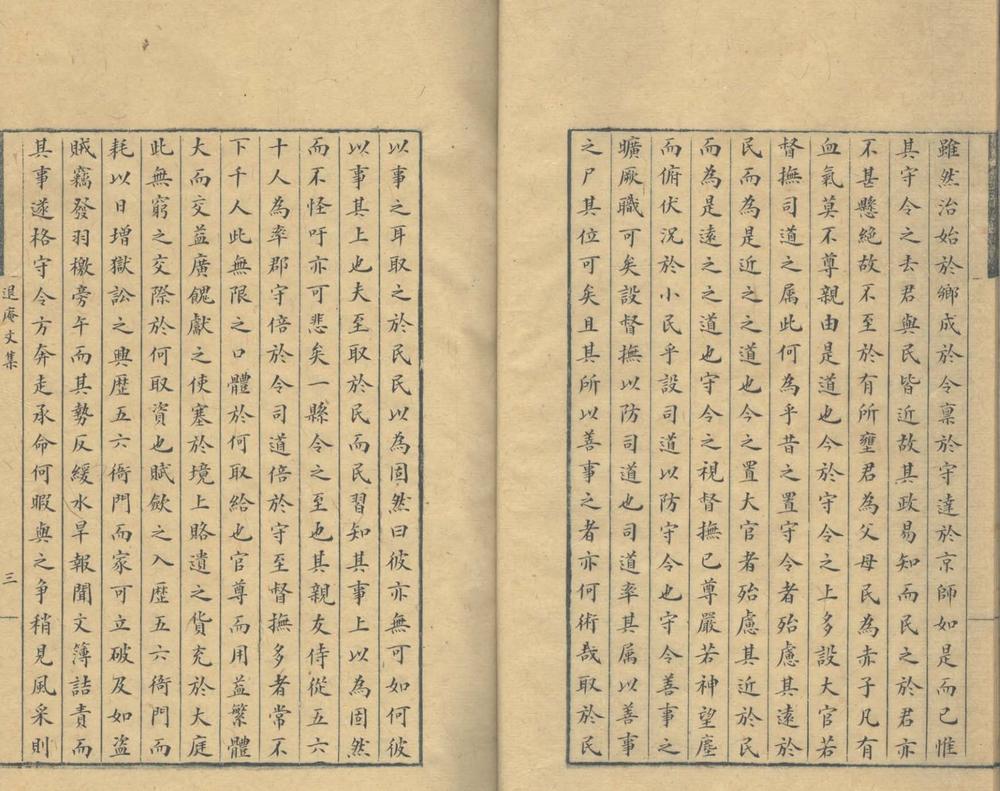 雖然治始於鄉成於令稟於守達於京師如是而已惟
其守令之去君與民皆近故其政易知而民之於君亦
不甚懸絕故不至於有所壅君為父母民為赤子凡有
血氣莫不尊親由是道也今於守令之上多設大官若
督撫司道之属此何為乎昔之置守令者殆慮其遠於
民而為是近之之道也今之置大官者殆慮其近於民
而為是遠之之道也守令之視督撫已尊嚴若神望塵
而俯伏況於小民乎設司道以防守令也守令善事之
曠厥職可矣設督撫以防司道也司道率其属以善事
之尸其位可矣且其所以善事之者亦何術哉取於民
以事之耳取之於民民以為固然曰彼亦無可如何彼
以事其上也夫至取於民而民習知其事上以為固然
而不怪吁亦可悲矣一縣令之至也其親友侍從五六
十人為率郡守倍於令司道倍於守至督撫多者常不
下千人此無限之口體於何取給也官尊而用益繁體
大而交益廣餽獻之使塞於境上賂遺之貨充於大庭
此無窮之交際於何取資也賦斂之入歷五六衙門而
耗以日增獄訟之興歷五六衙門而家可立破及如盜
賊竊發羽檄旁午而其勢反緩水旱報聞文簿詰責而
其事遂格守令方奔走承命何暇與之争稍見風采則
退庵文集
三